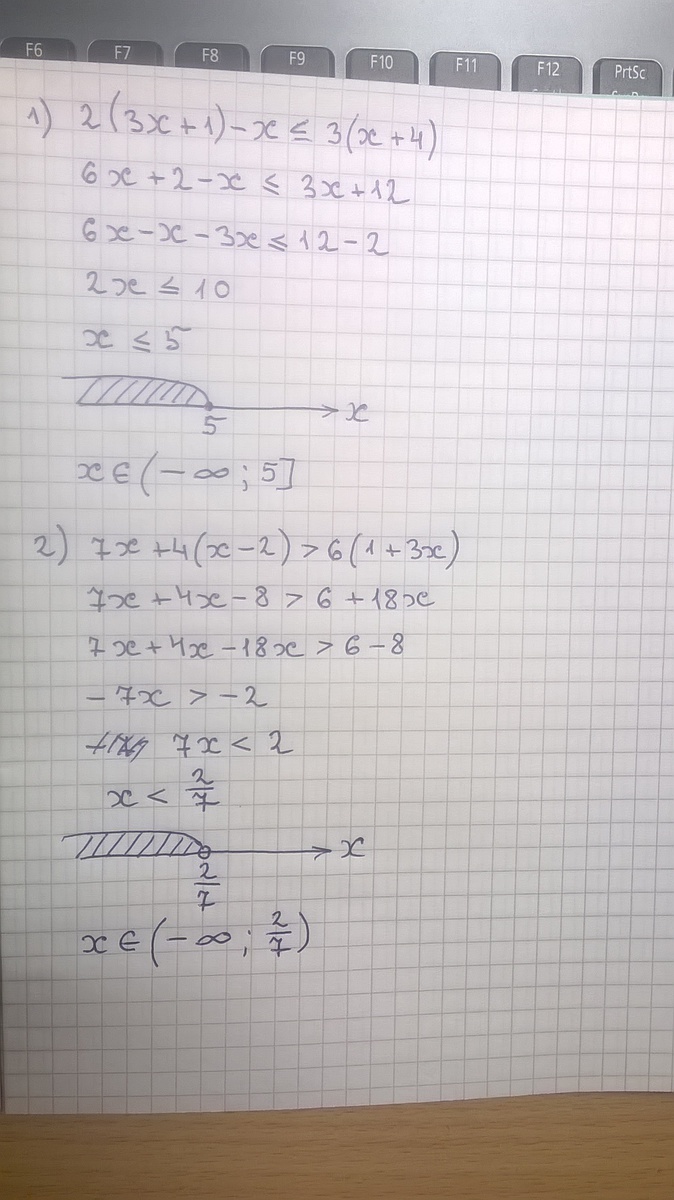 F6 F7 F8 F9 F10 F11 F12 PrtSc
1) 2(3x+1)-x ≤ 3(x+4)
6x+2-x ≤ 3x+12
6x-x-3x ≤ 12-2
2x ≤ 10
x ≤ 5
x
5
x∈(-∞; 5]
2) 7x+4(x-2) > 6(1+3x)
7x+4x-8 > 6+18x
7x+4x-18x > 6-8
-7x > -2
7x < 2
x < 2/7
x
2/7
x∈(-∞; 2/7)